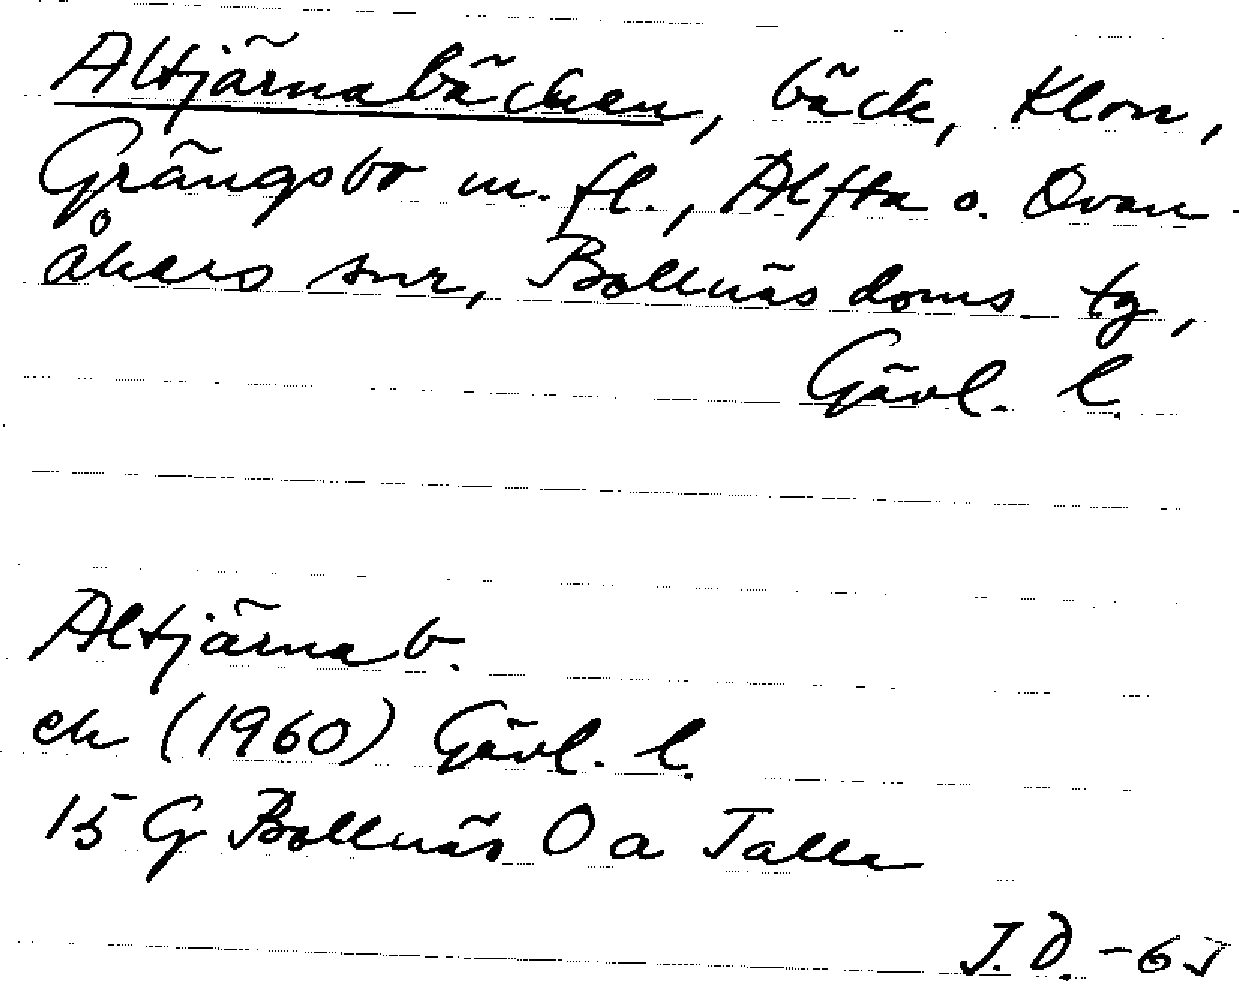 Altjärnabäcken, bäck, Klon,
Grängsbo m. fl., Alfta o. Ovan-
åkers snr, Bollnäs doms. tg,
Gävl. l.
Altjärnab.
ek (1960) Gävl. l.
15 G Bollnäs O a Talla